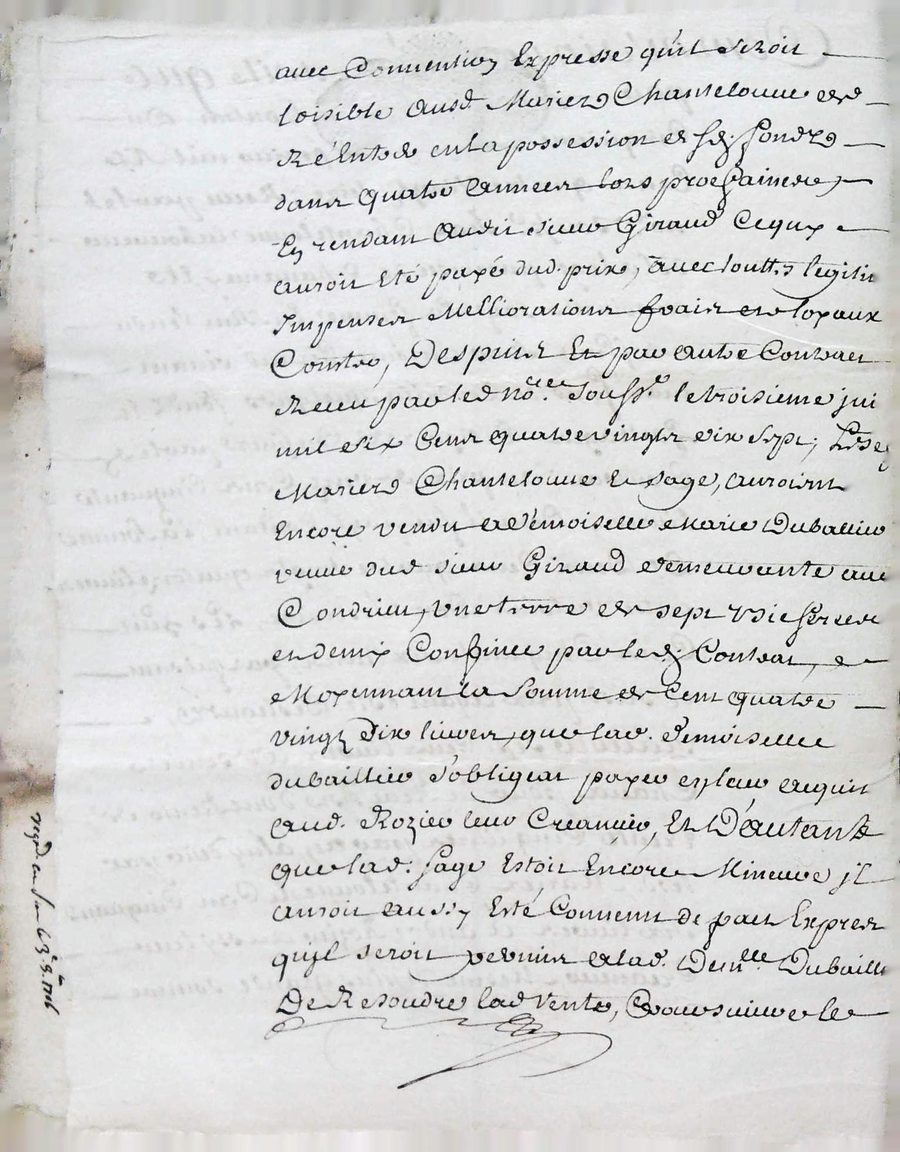 avec Convention Expresse qu'il seroit
loisible ausd. Mariez Chantelouue de
Rentrer en la possession desd. fondz
dans quatre années lors prochaines,
En rendant audit sieur Giraud Ce qux
auroit Eté payé dud. prix, avec touttes legitis
Impenses Melliorations fraix et loyaux
Coustz, Despuis Et par autre Contract
Receu par led. no.re Souss.né le troisieme jui
mil six Cens quatre vingts dix sept, Lesd
Mariez Chantelouue et Sage, auroient
Encore vendu a Demoiselle Marie Duballier
veuve dud. sieur Giraud demeurante au
Condrieu, une terre de sept
et demy Confinée par led. Contrat, et
Moyennant la Somme de Cent quatre
vingt Dix liures, que lad. Demoiselle
duballier s'obligeat payer en leur acquit
aud. Rozier leur Creancier, Et D'autant
que lad. Sage Estoit Encore Mineure jl
auroit aussy Esté Conuenu de pact Expres
qu'jl seroit permis a lad. Dem.lle Duballi
De Resoudre lad. Vente, &